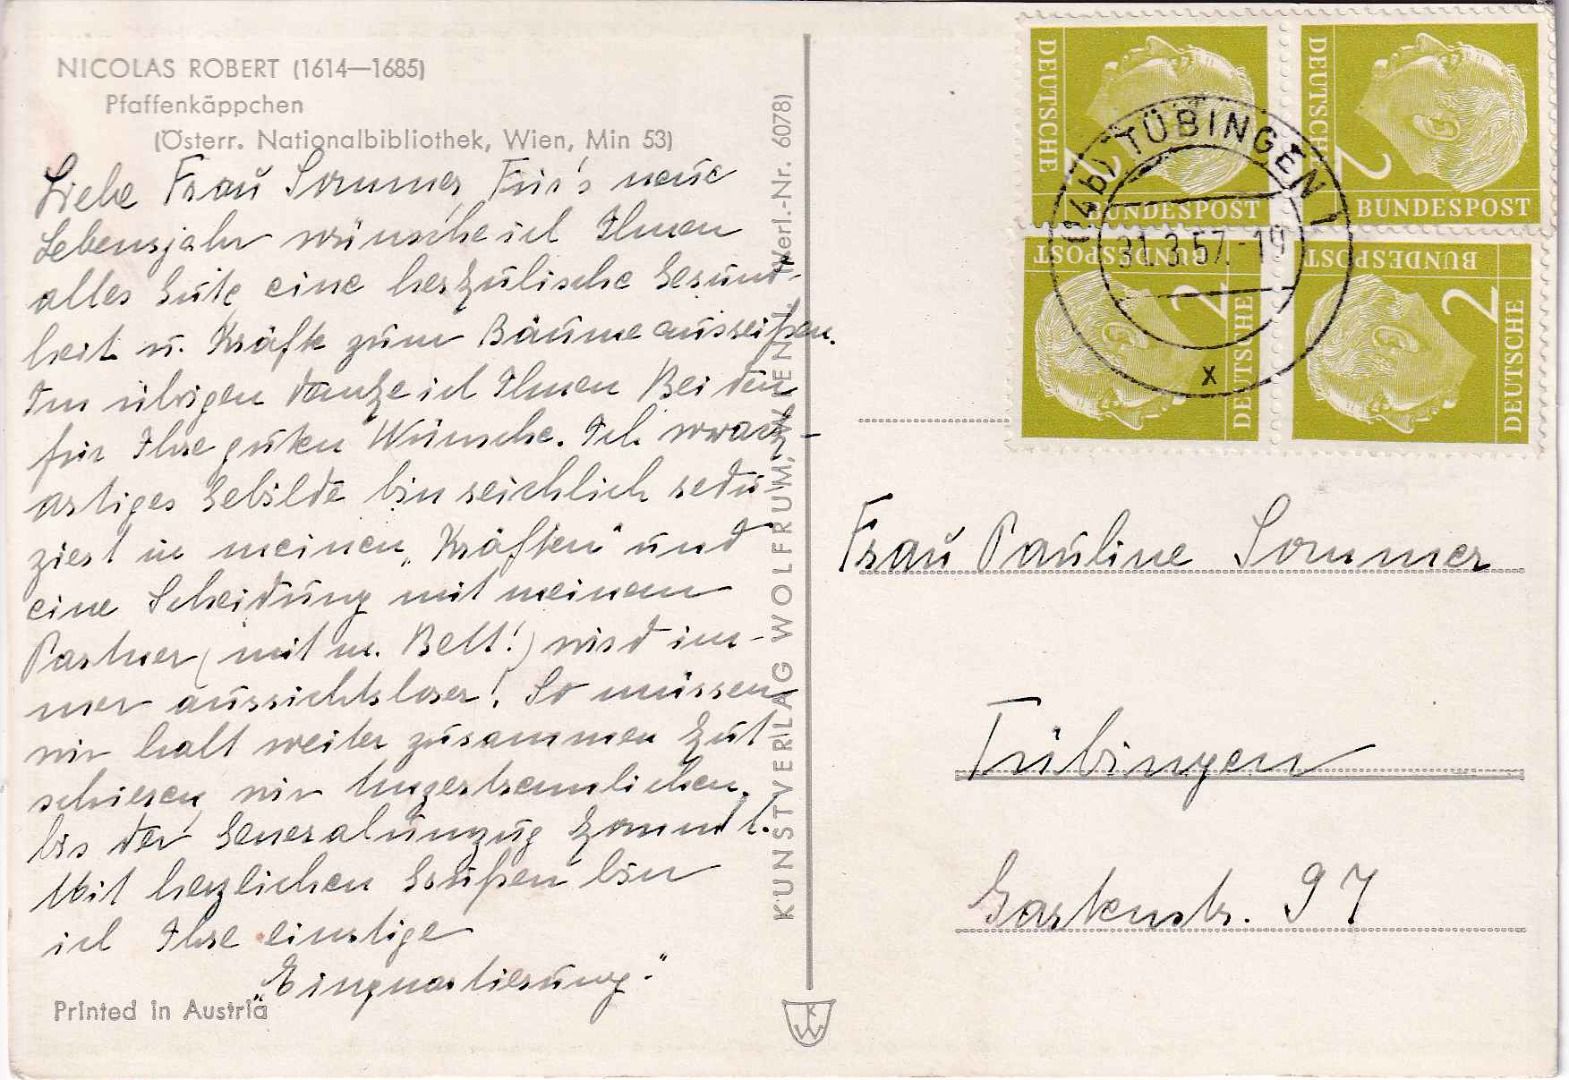 NICOLAS ROBERT (1614—1685)
Pfaffenkäppchen
(Österr. Nationalbibliothek, Wien, Min 53)
Liebe Frau Sommer, Für's neue
Lebensjahr wünsche ich Ihnen
alles Gute eine herkulische Gesund-
heit u. Kräfte zum Bäumeausreißen.
Im übrigen danke ich Ihnen Beiden
für Ihre guten Wünsche. Ich
artiges Gebilde bin reichlich redu-
ziert in meinen „Kräften" und
eine Scheidung mit meinem
Partner (mit m. Bett!) wird im-
mer aussichtsloser! So müssen
wir halt weiter zusammen kut-
schieren, wir Unzertrennlichen,
bis der Generalumzug kommt.
Mit herzlichen Grüßen bin
ich Ihre einstige
„Einquartierung."
Printed in Austria
KUNSTVERLAG WOLFRUM, WIEN I. (Verl.-Nr. 6078)
KW
DEUTSCHE BUNDESPOST 2
DEUTSCHE BUNDESPOST 2
DEUTSCHE BUNDESPOST 2
DEUTSCHE BUNDESPOST 2
(14b) TÜBINGEN 1
31.3.57.-19
x
Frau Pauline Sommer
Tübingen
Gartenstr. 97